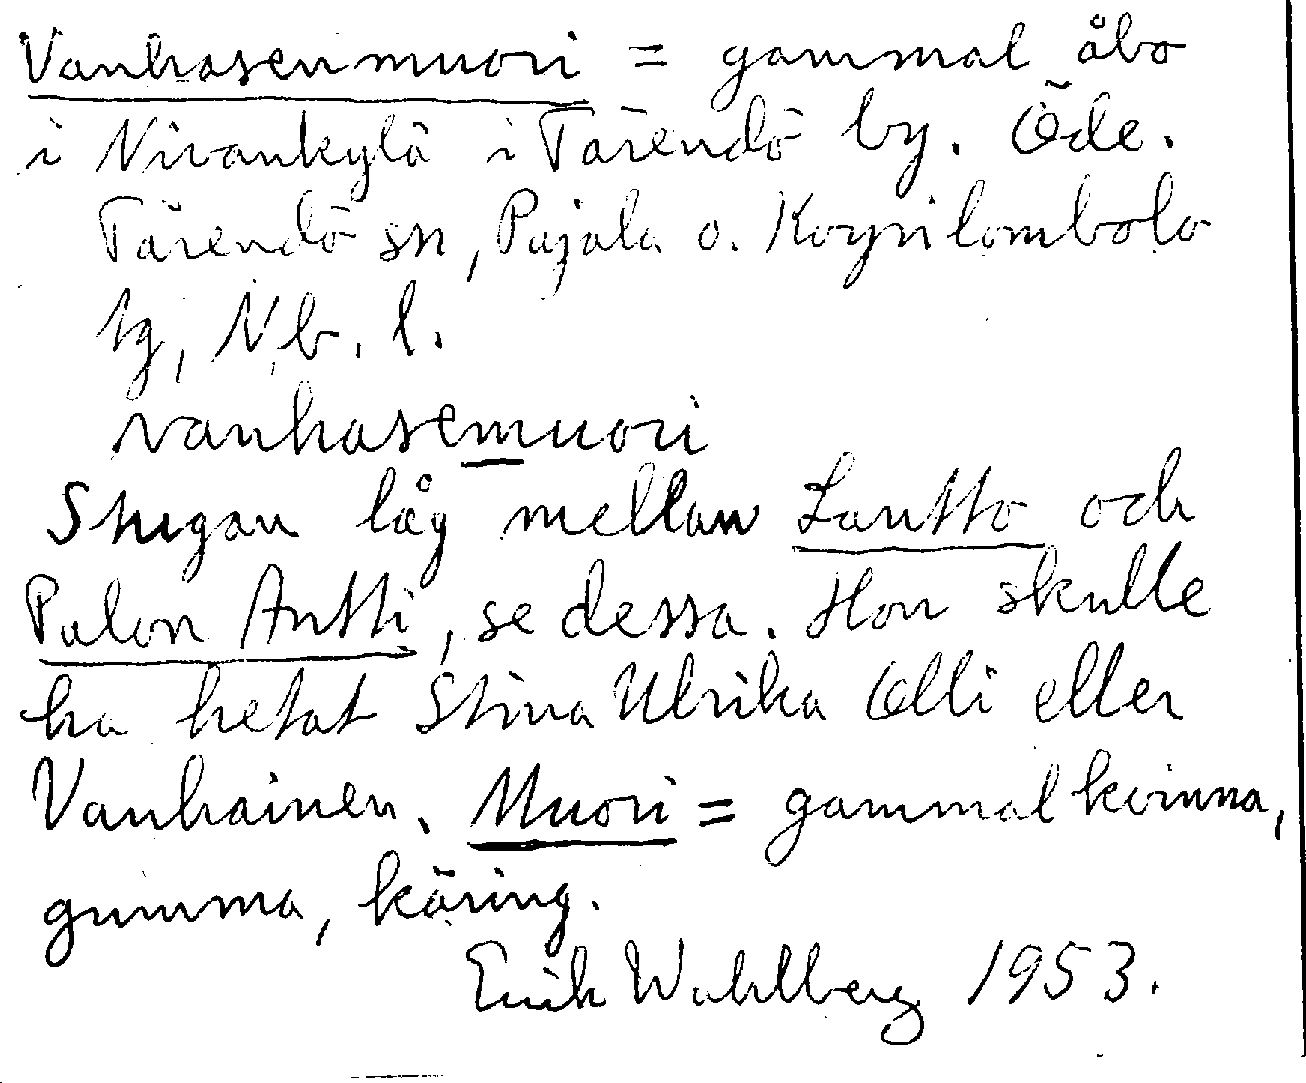 Vanhasenmuori = gammal åbo
i Nivankylä i Tärendö by. Öde.
Tärendö sn, Pajala o. Korpilombolo
tg, N.b.l.
vanhasemuori
Stugan låg mellan Lautto och
Palon Antti, se dessa. Hon skulle
ha hetat Stina Ulrika Olli eller
Vanhainen. Muori = gammal kvinna,
gumma, käring.
Erik Wahlberg 1953.